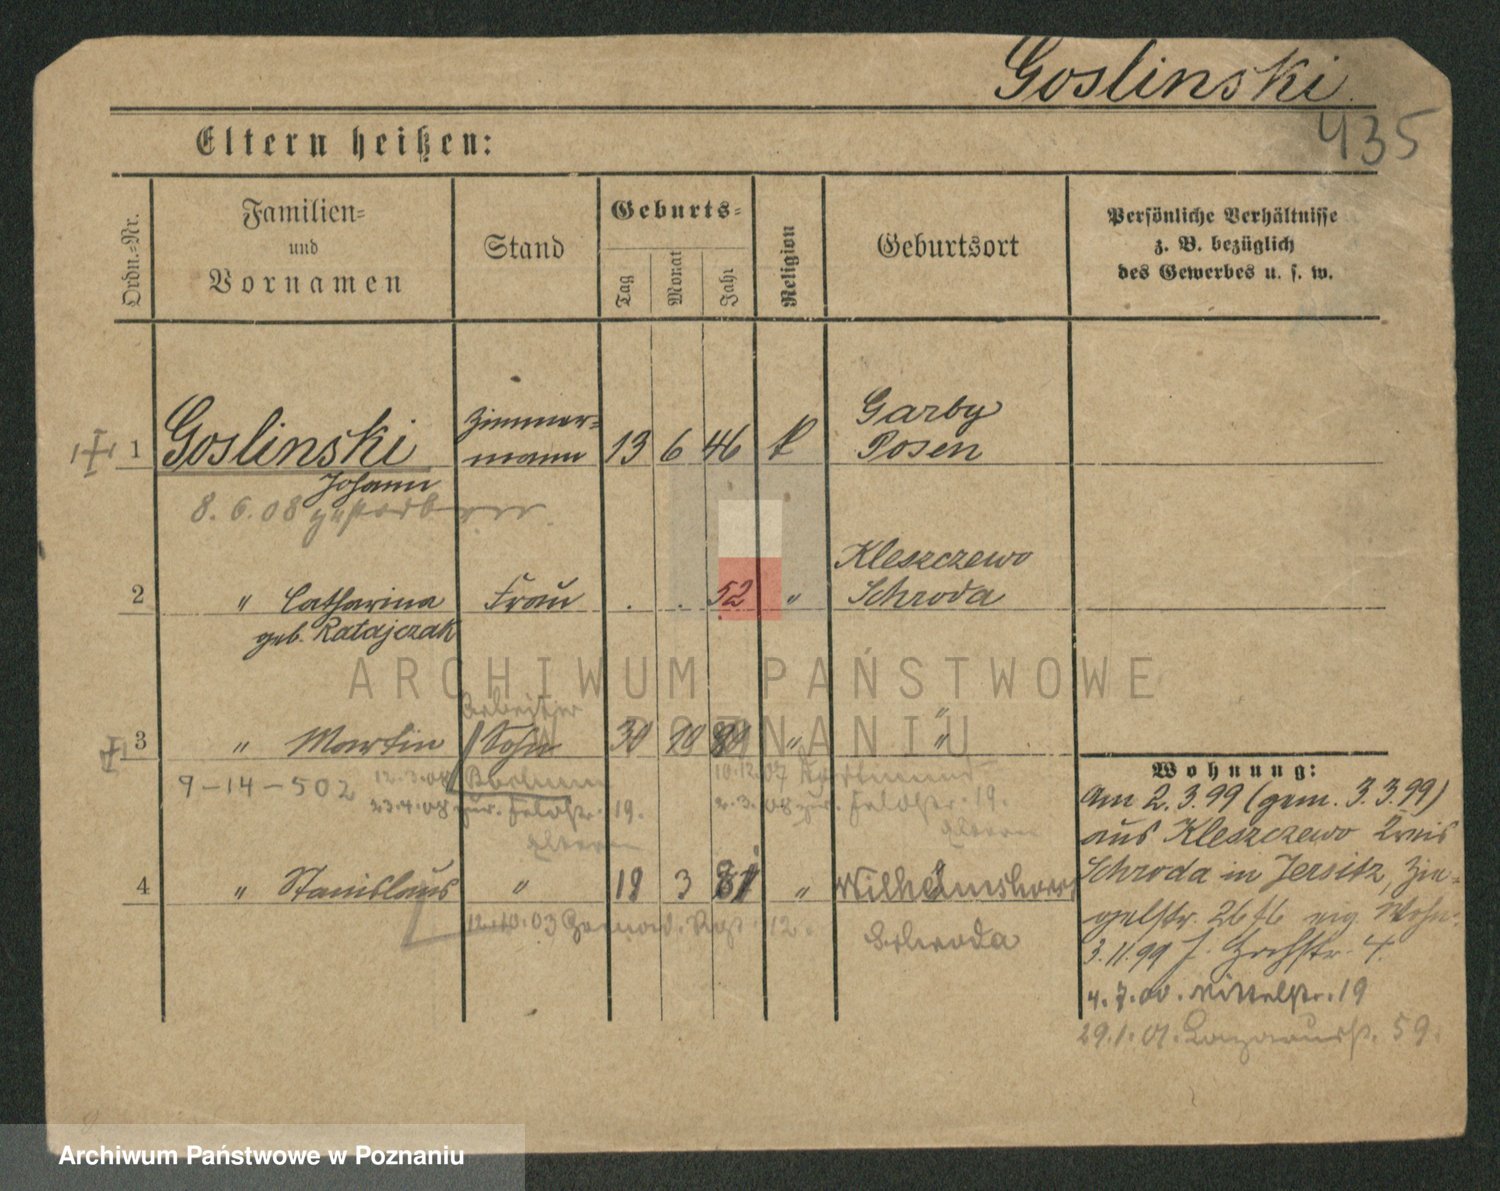 Goslinski
435
Eltern heißen:
Ordn.=Nr.
Familien=
und
Vornamen
Stand
Geburts=
Tag
Monat
Jahr
Religion
Geburtsort
Persönliche Verhältnisse
z. B. bezüglich
des Gewerbes u. s. w.
1 Goslinski Zimmer= 13 6 46 k Garby
mann Posen
Johann
8. 6. 08 gestorben
2 " Catharina Frau . . 52 " Kleszczewo
Schroda
geb. Ratajczak
ARCHIWUM PAŃSTWOWE
W POZNANIU
Arbeiter
3 " Martin Sohn 30 10 " "
9-14-502 12.3.08 Bochum 10.12.07 Dortmund
23.4.08 zur. Feldstr. 19. 2.3.08 zur. Feldstr. 19.
Eltern Eltern
4 " Stanislaus " 18 3 81 " Wilhelmshorst
12.10.03 12. Schroda
Wohnung:
Am 2.3.99 (gem. 3.3.99)
aus Kleszczewo Kreis
Schroda in Jersitz, Zie=
gelstr. 26 eig. Wohn.
3.11.99 J. Hochstr. 4.
4.7.00. Mittelstr. 19
29.1.01. Lazarusstr. 59.
Archiwum Państwowe w Poznaniu